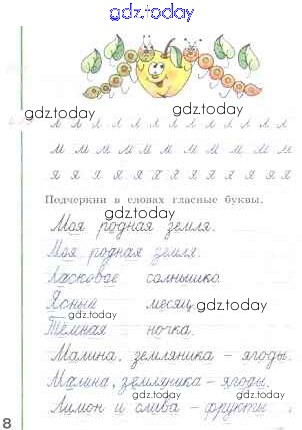 gdz.today
gdz.today
gdz.today
л л л л л л л л л л л л
м м м м м м м м м м
я я я я я я я я я я я
Подчеркни в словах гласные буквы.
gdz.today
Моя родная земля.
gdz.today
Моя родная земля.
Ласковое солнышко.
Ясный месяц.
gdz.today
Тёмная ночка.
Малина, земляника – ягоды.
Малина, земляника – ягоды.
gdz.today
Лимон и слива – фрукты.
8